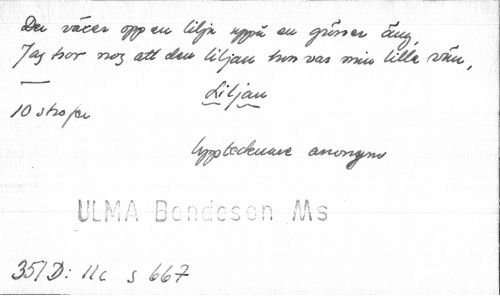 Der växer opp en lilja uppå en grönner äng,
Jag tror nog att den liljan hon var min lilla vän,
Liljan
10 strofer
Upptecknare anonym
ULMA Bondeson Ms
351 D: 11c s 667